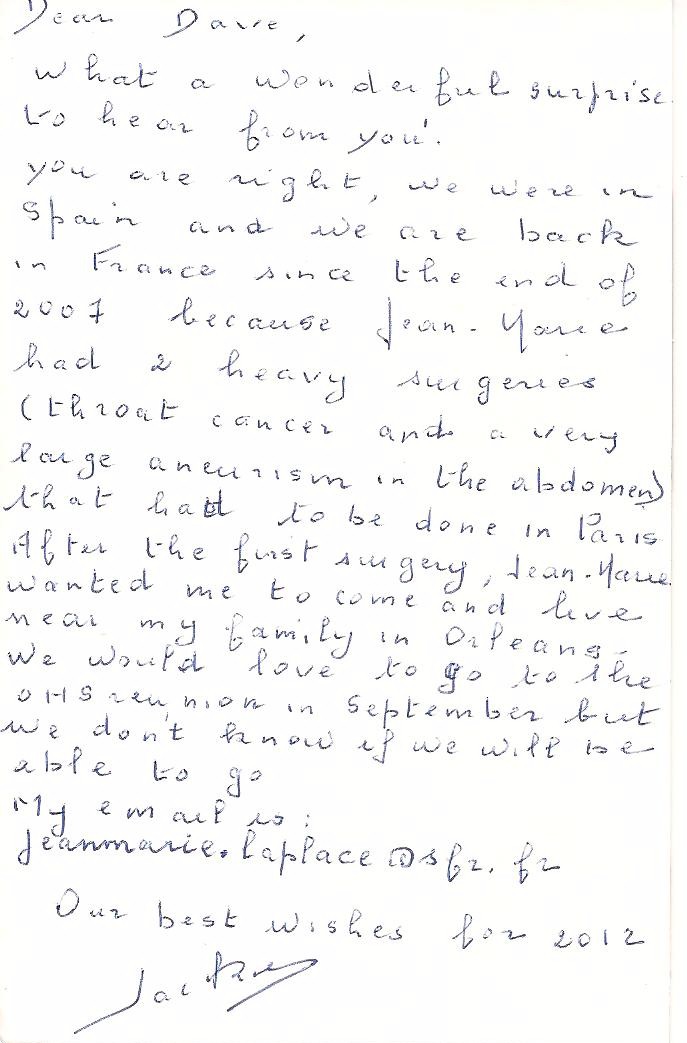 Dear Dave,
What a wonderful surprise
to hear from you!
you are right, we were in
Spain and we are back
in France since the end of
2007 because Jean-Marie
had 2 heavy surgeries
(throat cancer and a very
large aneurism in the abdomen)
that had to be done in Paris
After the first surgery, Jean-Marie
wanted me to come and live
near my family in Orleans-
We would love to go to the
OHS reunion in September but
we don't know if we will be
able to go
My email is:
jeanmarie.laplace@sfr.fr
Our best wishes for 2012